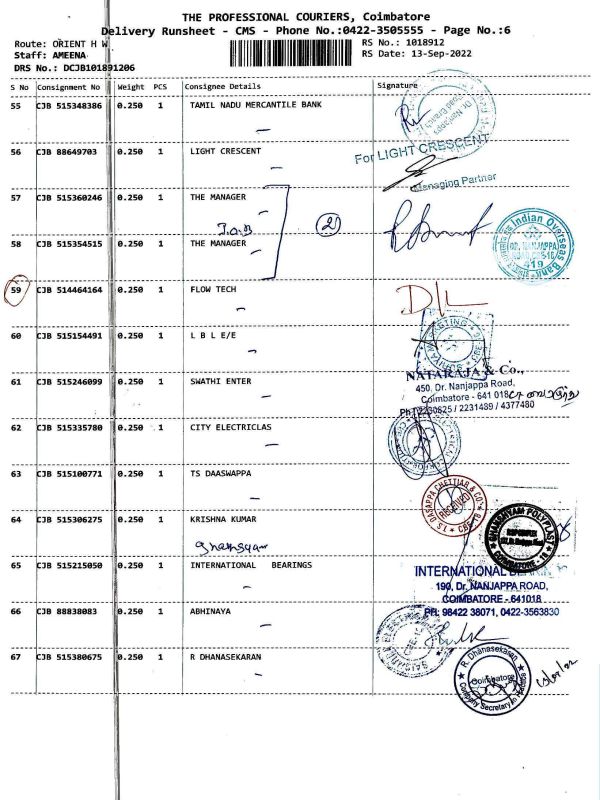 THE PROFESSIONAL COURIERS, Coimbatore
Delivery Runsheet - CMS - Phone No.:0422-3505555 - Page No.:6
Route: ORIENT H W
RS No.: 1018912
Staff: AMEENA
RS Date: 13-Sep-2022
DRS No.: DCJB101891206
S No Consignment No Weight PCS Consignee Details Signature
55 CJB 515348386 0.250 1 TAMIL NADU MERCANTILE BANK
Dr. Nanjappa
Road Branch
56 CJB 88649703 0.250 1 LIGHT CRESCENT
For LIGHT CRESCENT
Managing Partner
57 CJB 515360246 0.250 1 THE MANAGER
I.O.B
2
Indian Overseas Bank
DR. NANJAPPA
ROAD, CBE-18
419
58 CJB 515354515 0.250 1 THE MANAGER
59 CJB 514464164 0.250 1 FLOW TECH
D/L
60 CJB 515154491 0.250 1 L B L E/E
61 CJB 515246099 0.250 1 SWATHI ENTER
NATARAJA & Co.,
450, Dr. Nanjappa Road,
Coimbatore - 641 018
Ph: 2230825 / 2231489 / 4377480
62 CJB 515335780 0.250 1 CITY ELECTRICLAS
63 CJB 515100771 0.250 1 TS DAASWAPPA
T.S. DASAPPA CHETTIAR & CO
RECEIVED
CBE-18
64 CJB 515306275 0.250 1 KRISHNA KUMAR
Ghanshyam
GHANSHYAM POLYPLAST
COIMBATORE - 18
65 CJB 515215050 0.250 1 INTERNATIONAL BEARINGS
INTERNATIONAL BEARIN
190, Dr. NANJAPPA ROAD,
COIMBATORE - 641018
PH: 98422 38071, 0422-3563830
66 CJB 88838083 0.250 1 ABHINAYA
67 CJB 515380675 0.250 1 R DHANASEKARAN
R. Dhanasekaran
Coimbatore
Company Secretary in Practice